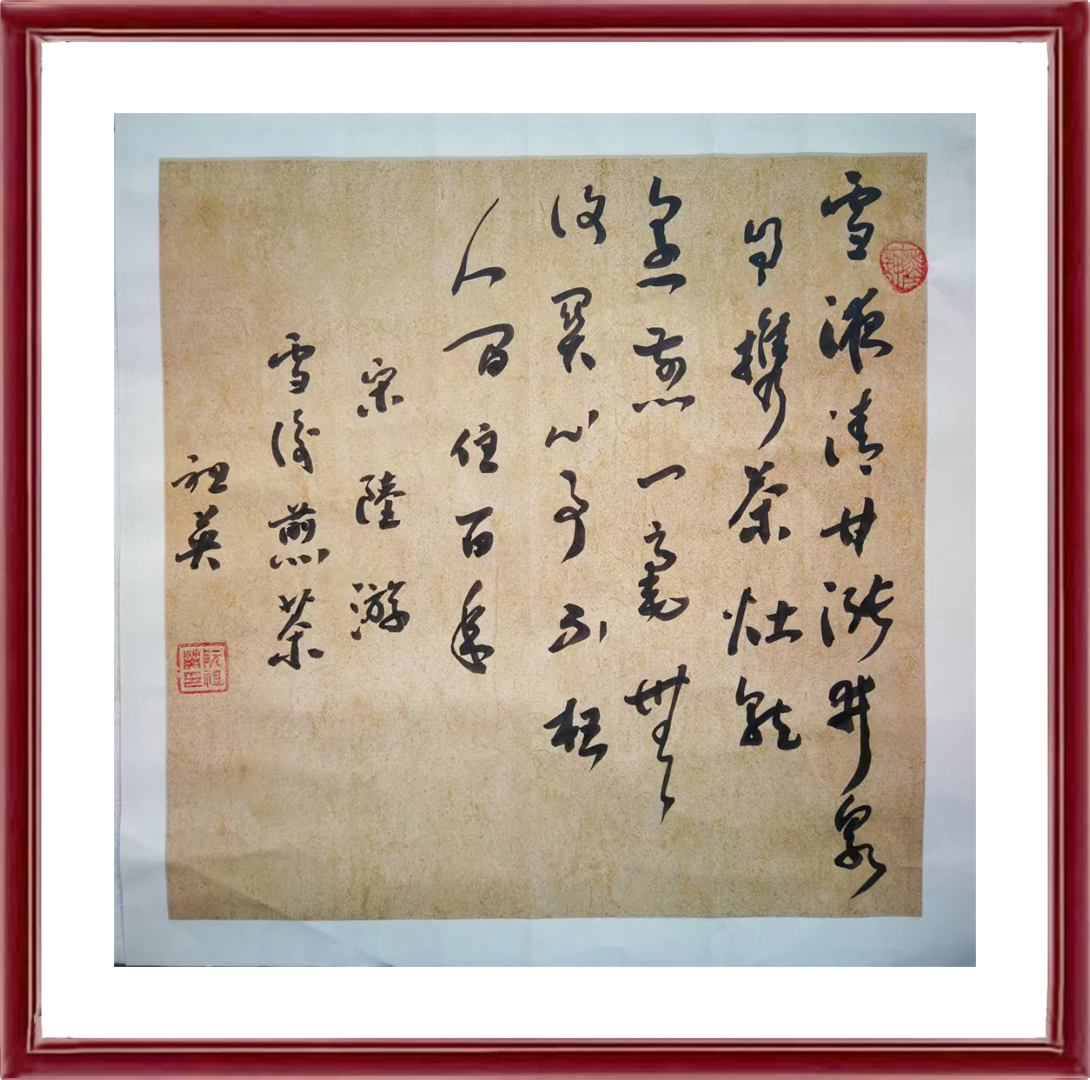 雪液清甘漲井泉
自携茶灶就
烹煎一毫無
復關心事不枉
人間住百年
宋陸游
雪後煎茶
祖英